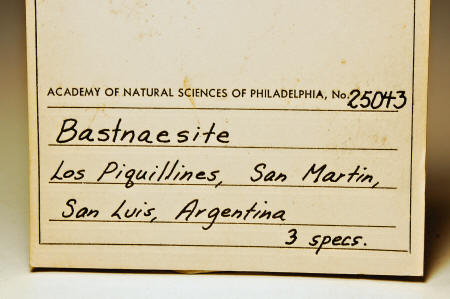 ACADEMY OF NATURAL SCIENCES OF PHILADELPHIA, No. 25043
Bastnaesite
Los Piquillines, San Martin,
San Luis, Argentina
3 specs.